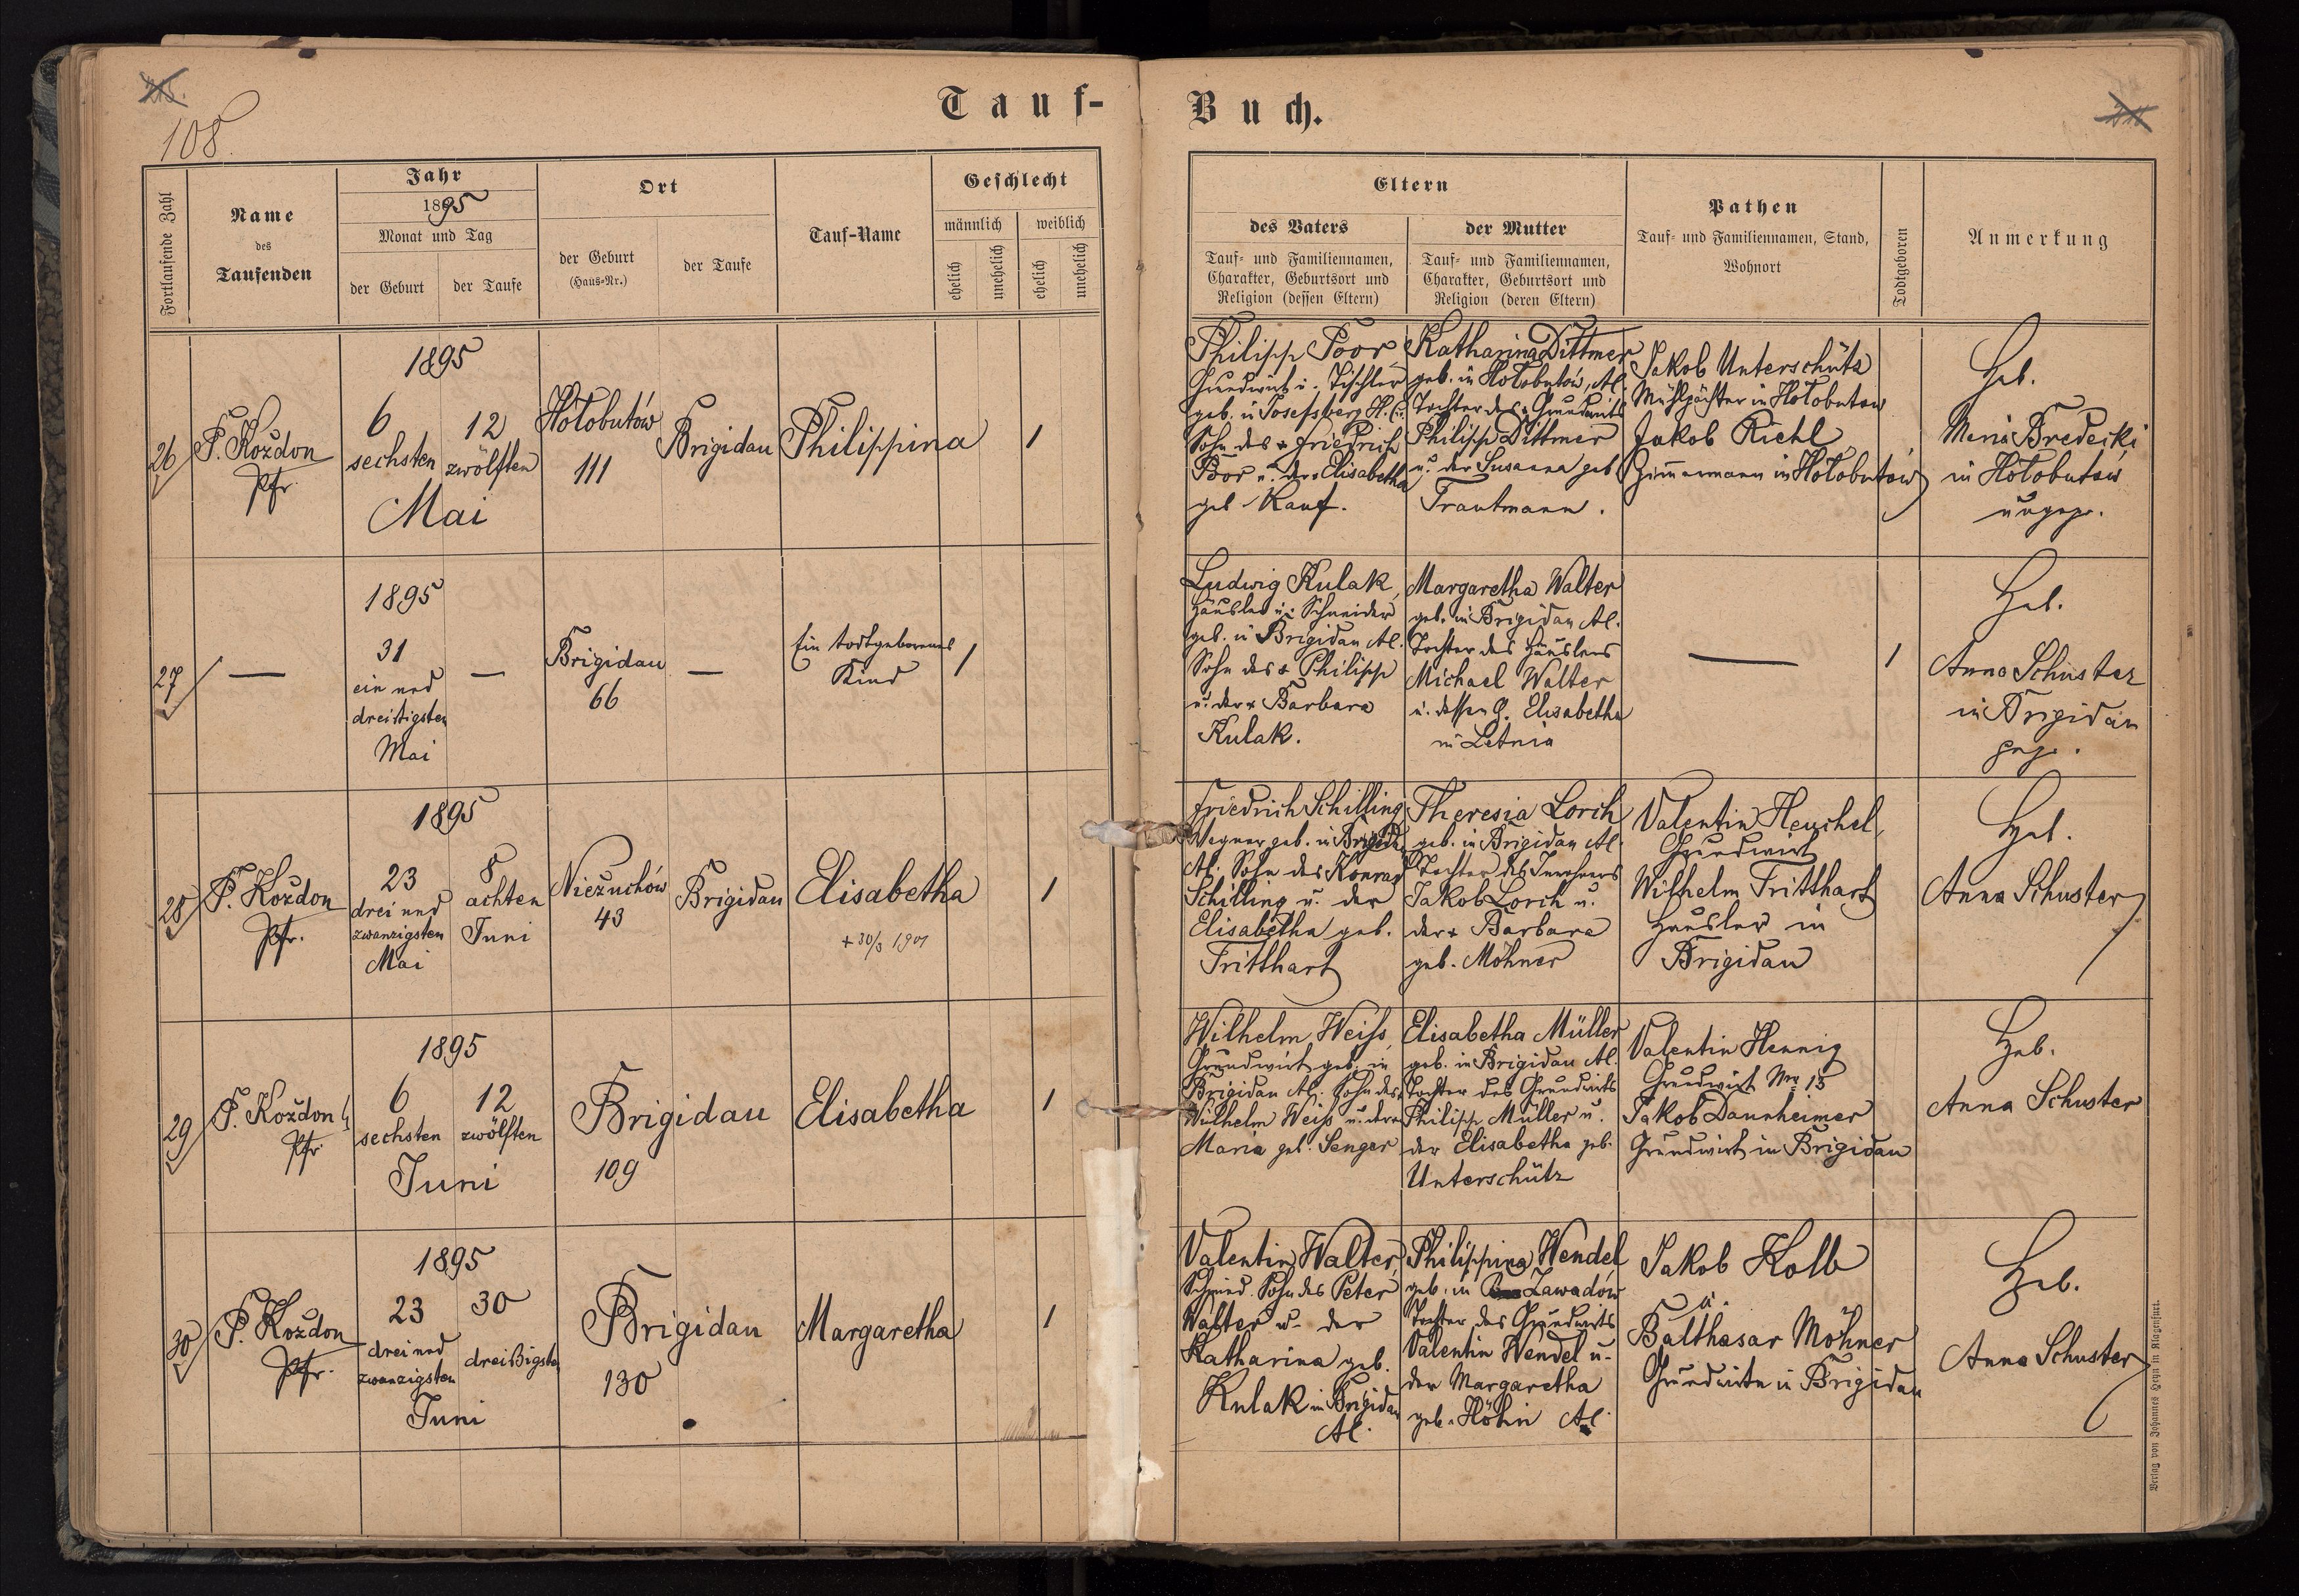 108.
Tauf-
Buch.
Fortlaufende Zahl
Name
des
Taufenden
Jahr
1895
Monat und Tag
der Geburt
der Taufe
Ort
der Geburt
(Haus-Nr.)
der Taufe
Tauf-Name
Geschlecht
männlich
weiblich
ehelich
unehelich
ehelich
unehelich
Eltern
des Vaters
Tauf- und Familiennamen,
Charakter, Geburtsort und
Religion (dessen Eltern)
der Mutter
Tauf- und Familiennamen,
Charakter, Geburtsort und
Religion (deren Eltern)
Pathen
Tauf- und Familiennamen, Stand,
Wohnort
Todtgeboren
Anmerkung
26
P. Kożdon
Pfr.
1895
6
sechsten
12
zwölften
Mai
Hołobutów
111
Brigidau
Philippina
1
Philipp Poor
Grundwirt u. Tischler
geb. in Josefsberg H. C.
Sohn des + Friedrich
Poor u. der Elisabetha
geb. Kauf.
Katharina Dittmer
geb. in Hołobutów, Al.
Tochter des + Grundwirts
Philipp Dittmer
u. der Susanna geb
Trautmann.
Jakob Unterschütz
Mühlpächter in Hołobutow
Jakob Riehl
Zimmermann in Hołobutów
Heb.
Maria Bredecki
in Hołobutów
ungepr.
27
—
1895
31
ein und
dreißigsten
Mai
—
Brigidau
66
—
Ein todtgeborenes
Kind
1
Ludwig Kulak,
Häusler u. Schneider
geb. in Brigidau Al.
Sohn des + Philipp
u. der + Barbara
Kulak.
Margaretha Walter
geb. in Brigidau Al.
Tochter des Häuslers
Michael Walter
u. dessen G. Elisabetha
in Letnia
—
1
Heb.
Anna Schuster
in Brigidau
gepr.
28
P. Kożdon
Pfr.
1895
23
drei und
zwanzigsten
Mai
8
achten
Juni
Nieżuchów
43
Brigidau
Elisabetha
+ 30/3 1901
1
Friedrich Schilling,
Wagner geb. in Brigidau
Al. Sohn des Konrad
Schilling u. der
Elisabetha geb.
Fritthart
Theresia Lorch
geb. in Brigidau Al.
Tochter des Inwohners
Jakob Lorch u.
der + Barbara
geb. Möhner
Valentin Heuchel,
Grundwirt
Wilhelm Fritthart
Häusler in
Brigidau
Heb.
Anna Schuster
29
P. Kożdon
Pfr.
1895
6
sechsten
12
zwölften
Juni
Brigidau
109
Elisabetha
1
Wilhelm Weiss,
Grundwirt geb. in
Brigidau Al. Sohn des +
Wilhelm Weiss u. der +
Maria geb. Senger
Elisabetha Müller
geb. in Brigidau Al.
Tochter des Grundwirts
Philipp Müller u.
der Elisabetha geb.
Unterschütz
Valentin Hennig
Grundwirt Nro 15
Jakob Daunheimer
Grundwirt in Brigidau
Heb.
Anna Schuster
30
P. Kożdon
Pfr.
1895
23
drei und
zwanzigsten
30
dreißigsten
Juni
Brigidau
130
Margaretha
1
Valentin Walter,
Schmied. Sohn des Peter
Walter u. der
Katharina geb.
Kulak in Brigidau
Al.
Philippina Wendel
geb. in Zawadów
Tochter des Grundwirts
Valentin Wendel u.
der Margaretha
geb. Höhn Al.
Jakob Kolb
u.
Balthasar Möhner
Grundwirte in Brigidau
Heb.
Anna Schuster
Verlag von Johannes Heyn in Klagenfurt.